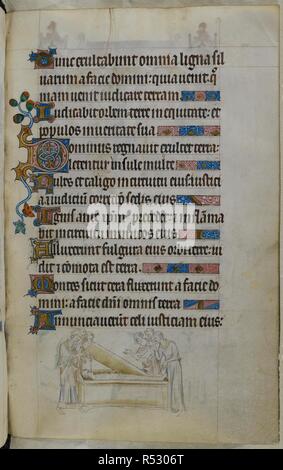 Tunc exultabunt omnia ligna sil
uarum a facie domini: quia uenit qm̄
niam uenit iudicare terram
Iudicabit orbem terre in equitate: et
populos in ueritate sua
Dominus regnauit exultet terra:
letentur insule multe
Nubes et caligo in circuitu eius: iusticia
et iudicium correctio sedis eius
Ignis ante ipsum precedet: et inflamma
bit in circuitu inimicos eius
Alluxerunt fulgura eius orbi terre: ui
dit et comota est terra
Montes sicut cera fluxerunt a facie do
mini: a facie dn̄i omnis terra
Annunciauerunt celi iusticiam eius:
alamy
www.alamy.com - R5306T